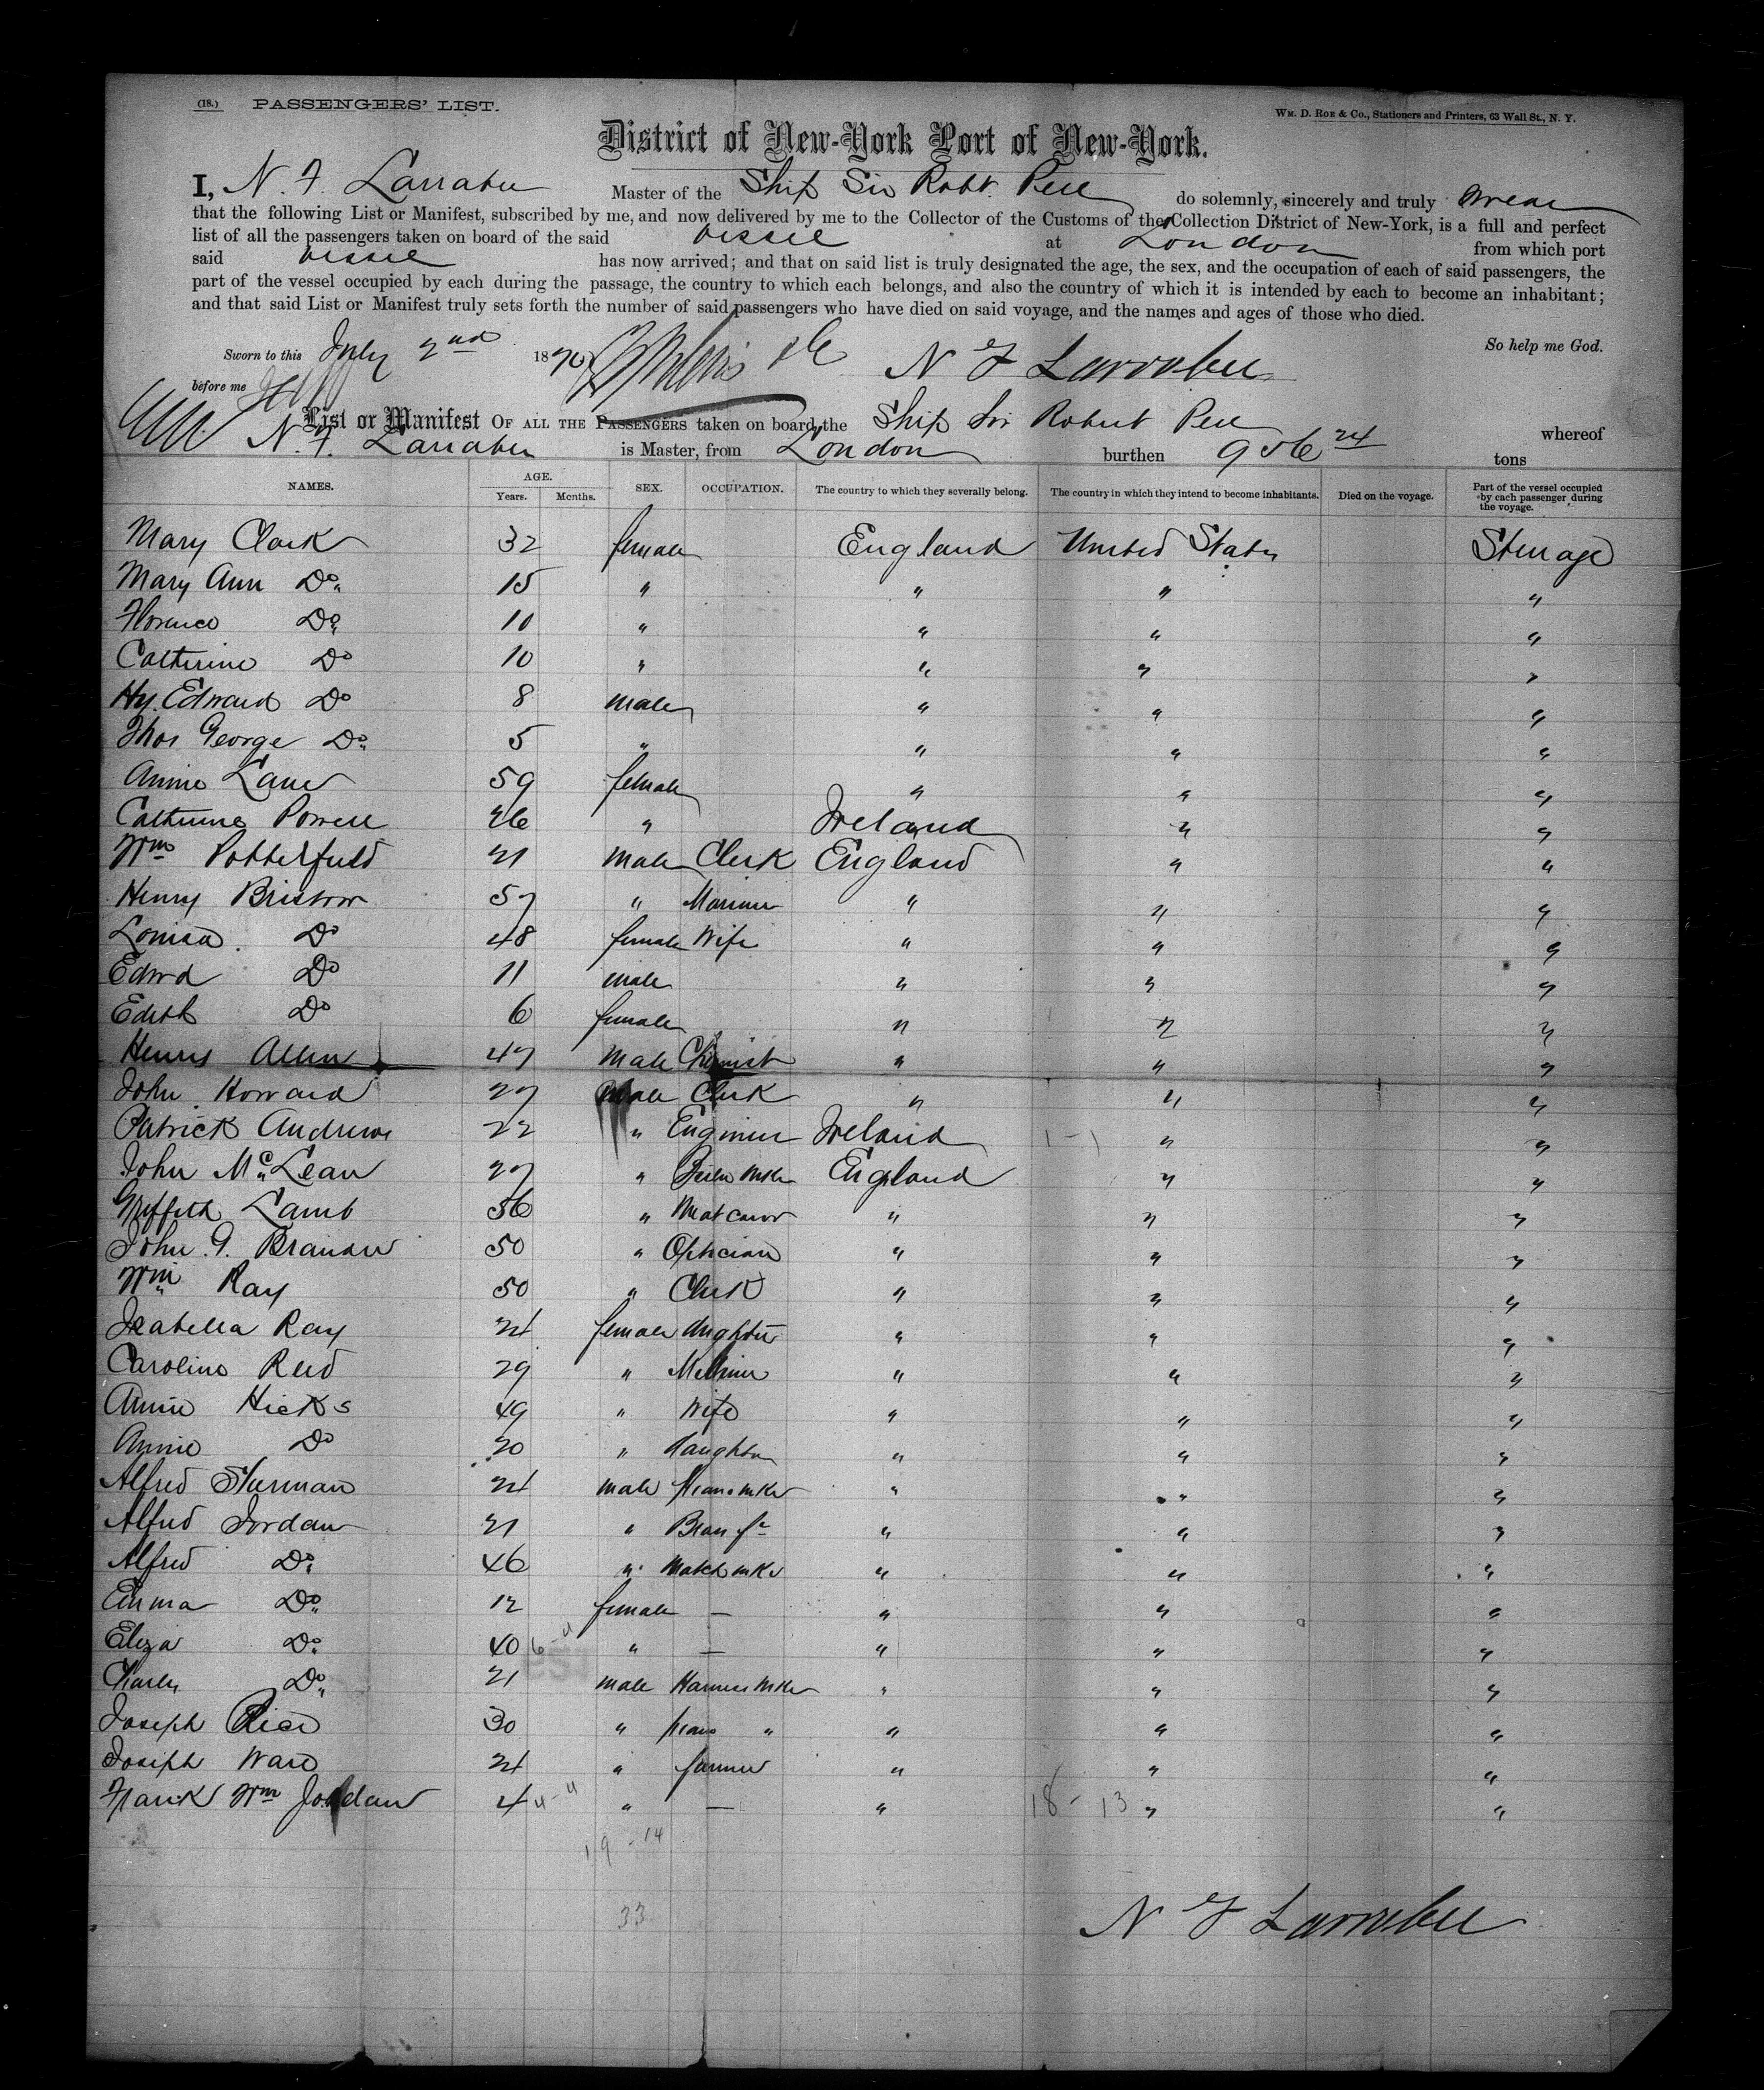 (18.) PASSENGERS' LIST.
WM. D. ROE & CO., Stationers and Printers, 63 Wall St., N. Y.
District of New-York Port of New-York.
I, N. F. Larrabee Master of the Ship Sir Robt. Peel do solemnly, sincerely and truly swear
that the following List or Manifest, subscribed by me, and now delivered by me to the Collector of the Customs of the Collection District of New-York, is a full and perfect
list of all the passengers taken on board of the said vessel at London from which port
said vessel has now arrived; and that on said list is truly designated the age, the sex, and the occupation of each of said passengers, the
part of the vessel occupied by each during the passage, the country to which each belongs, and also the country of which it is intended by each to become an inhabitant;
and that said List or Manifest truly sets forth the number of said passengers who have died on said voyage, and the names and ages of those who died.
So help me God.
Sworn to this July 2nd 1870
N F Larrabee
before me
List or Manifest OF ALL THE PASSENGERS taken on board the Ship Sir Robert Peel whereof
N. F. Larrabee is Master, from London burthen 956 24 tons
NAMES. AGE. Years. Months. SEX. OCCUPATION. The country to which they severally belong. The country in which they intend to become inhabitants. Died on the voyage. Part of the vessel occupied by each passenger during the voyage.
Mary Clark 32 female England United States Steerage
Mary Ann Do. 15 " " " "
Florence Do. 10 " " " "
Catherine Do 10 " " " "
Hy. Edward Do 8 male " " "
Thos George Do. 5 " " " "
Annie Lane 59 female " " "
Catherine Powell 26 " Ireland " "
Wm Potterfield 21 male Clerk England " "
Henry Bristow 57 " Mariner " " "
Louisa Do 48 female Wife " " "
Edwd Do 11 male " " "
Edith Do 6 female " " "
Henry Allen 47 male Chemist " " "
John Howard 27 male Clerk " " "
Patrick Andrews 22 " Engineer Ireland " "
John McLean 27 " Boiler mker England " "
Griffith Lamb 56 " " " "
John G. 50 " Optician " " "
Wm Ray 50 " Clerk " " "
Isabella Ray 21 female daughter " " "
Caroline Reed 29 " Milliner " " "
Annie Hicks 49 " Wife " " "
Annie Do 20 " daughter " " "
Alfred Sherman 21 male piano mker " " "
Alfred Jordan 21 " Brass fr " " "
Alfred Do. 46 " Match mkr " " "
Emma Do. 12 female — " " "
Eliza Do. 40 " — " " "
Charles Do. 21 male Harness mker " " "
Joseph Rice 30 " piano " " " "
Joseph Ward 21 " farmer " " "
Frank Wm Jordan 4 " — " " "
18 - 13
19 - 14
33
N F Larrabee